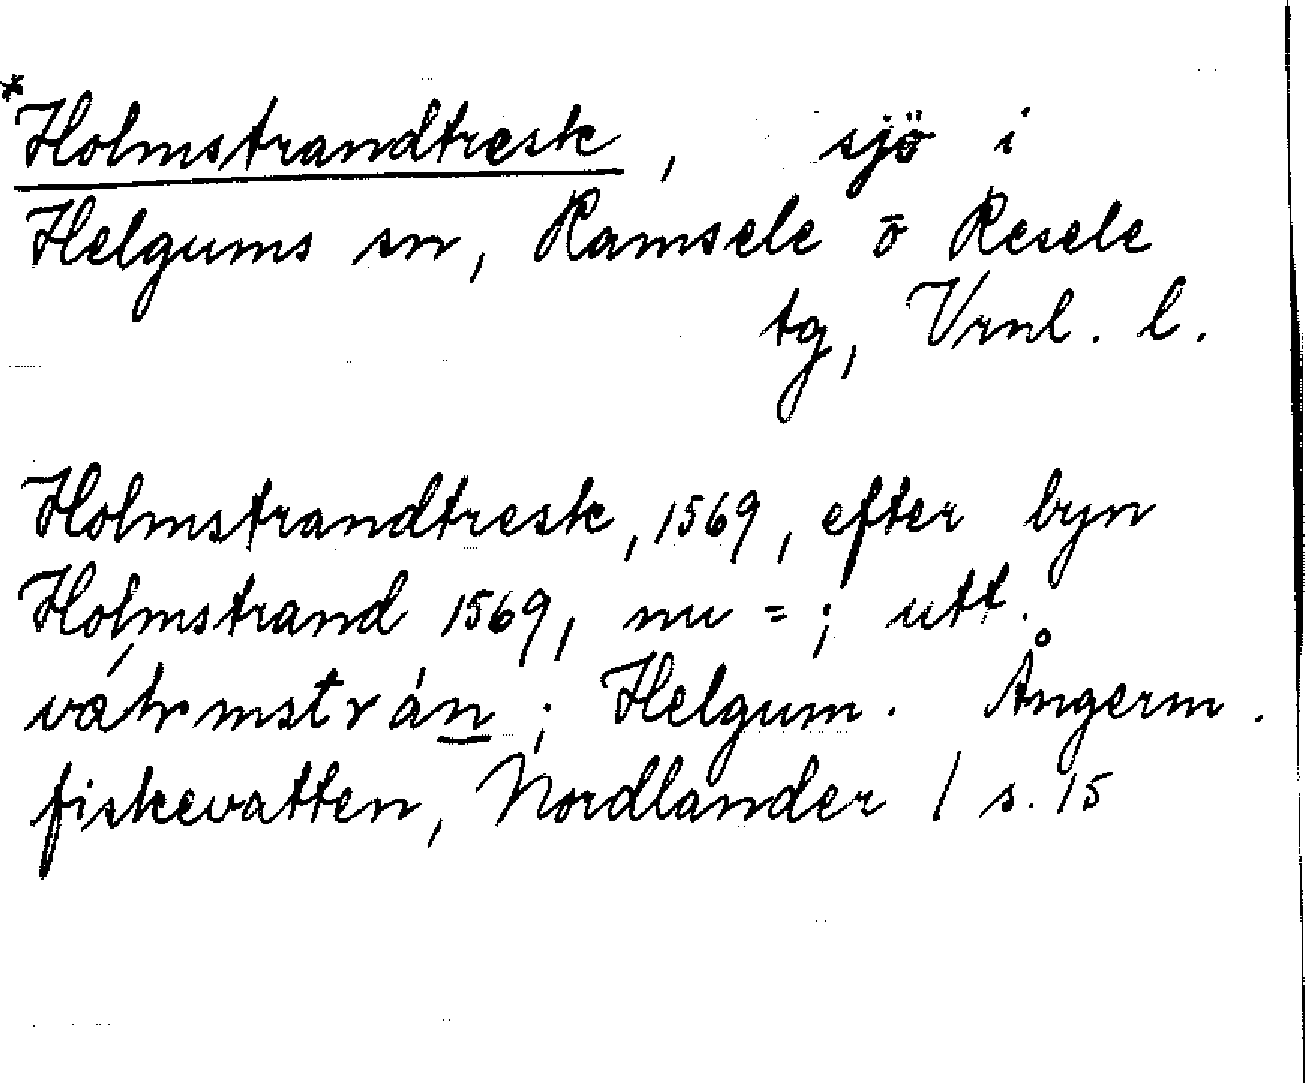 *Holmstrandtresk, sjö i
Helgums sn, Ramsele o Resele
tg, Vrnl. l.
Holmstrandtresk, 1569, efter byn
Holmstrand 1569, nu = ; utt.
; Helgum. Ångerm.
fiskevatten, Nordlander / s. 15